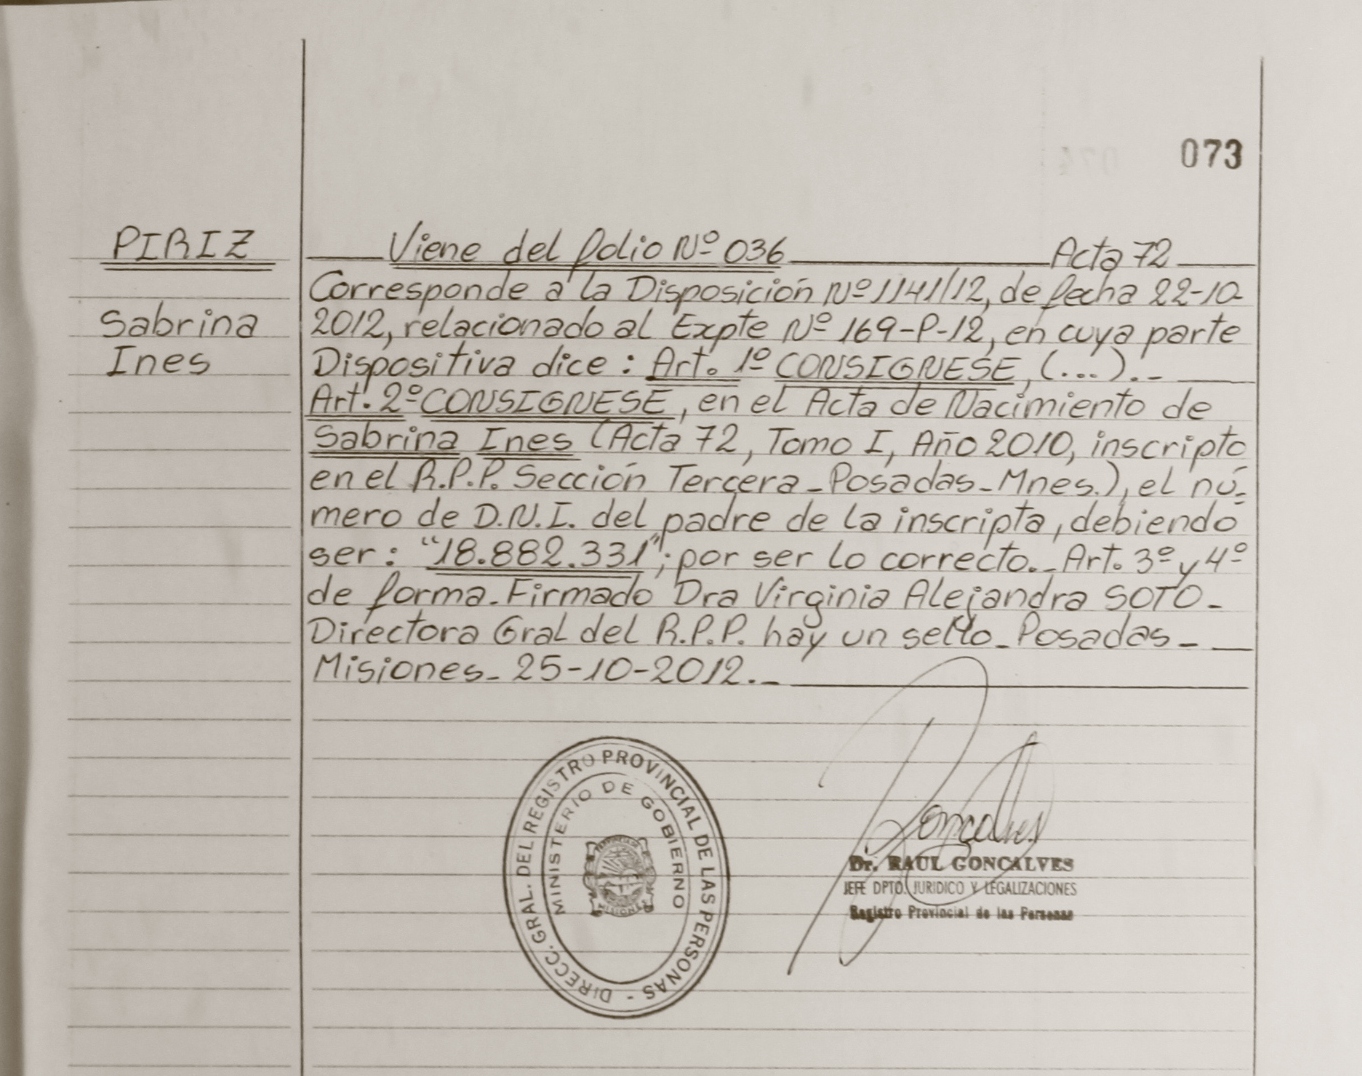 073
PIRIZ
Sabrina
Ines
Viene del folio Nº 036 Acta 72
Corresponde a la Disposición Nº 1141/12, de fecha 22-10-
2012, relacionado al Expte Nº 169-P-12, en cuya parte
Dispositiva dice: Art. 1º CONSIGNESE, (...).-
Art. 2º CONSIGNESE, en el Acta de Nacimiento de
Sabrina Ines (Acta 72, Tomo I, Año 2010, inscripto
en el R.P.P. Sección Tercera-Posadas-Mnes.), el nú-
mero de D.N.I. del padre de la inscripta, debiendo
ser: "18.882.331"; por ser lo correcto.- Art. 3º y 4º
de forma.-Firmado Dra Virginia Alejandra SOTO-
Directora Gral del R.P.P. hay un sello-Posadas-
Misiones-25-10-2012.-
DIRECC. GRAL. DEL REGISTRO PROVINCIAL DE LAS PERSONAS -
MINISTERIO DE GOBIERNO
MISIONES
Goncalves
Dr. RAUL GONCALVES
JEFE DPTO. JURIDICO Y LEGALIZACIONES
Registro Provincial de las Personas